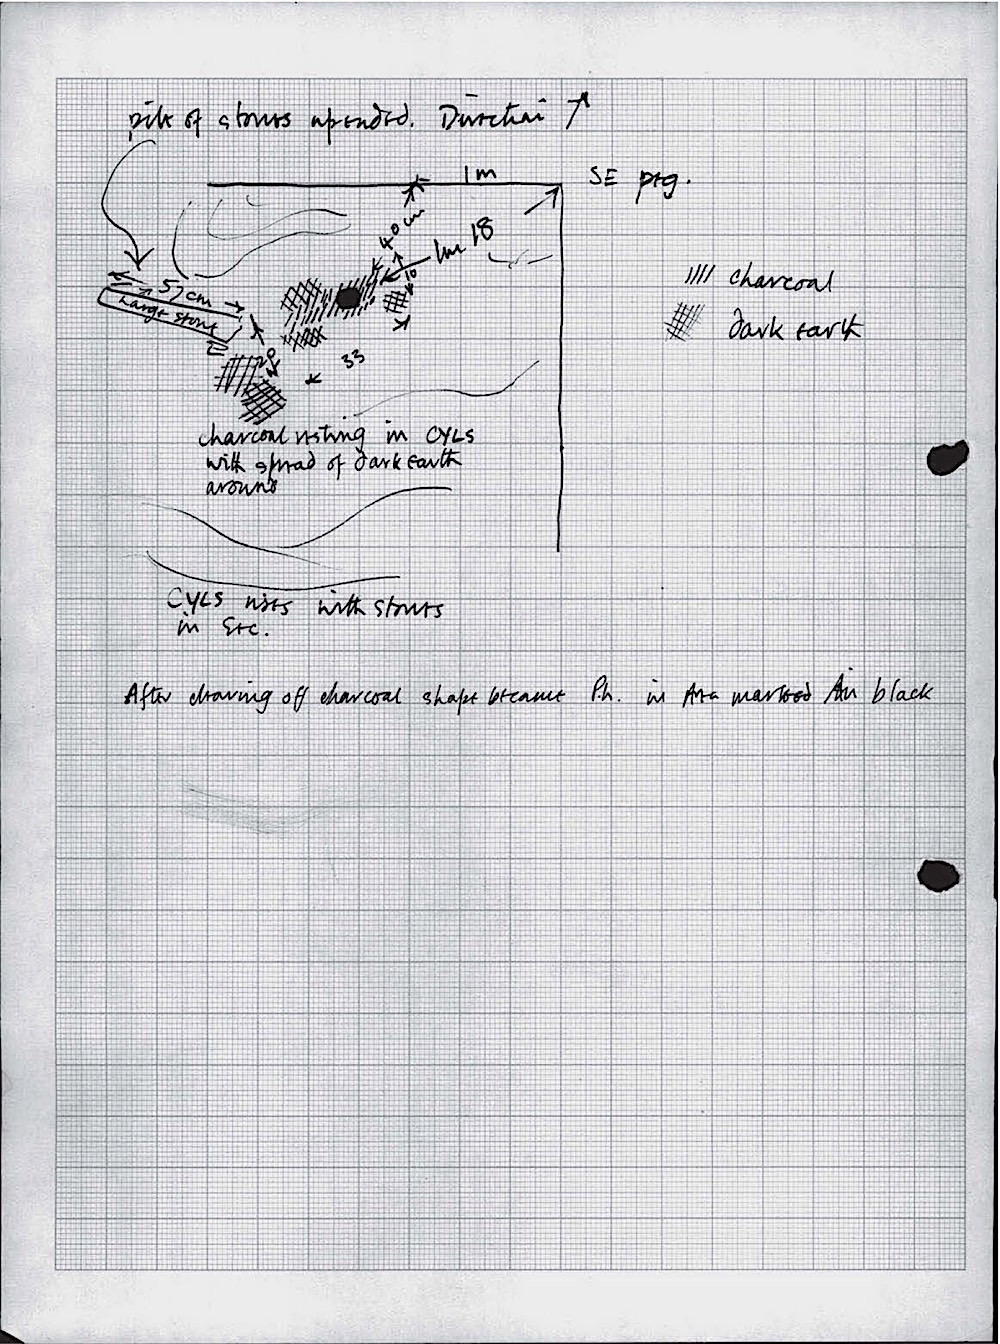 pile of stones upended. Direction
1m
SE peg.
40 cm
1m 18
10
57 cm
Large stone
20
33
charcoal
dark earth
charcoal resting in CYLS
with spread of dark earth
around
CYLS rises with stones
in etc.
After drawing off charcoal shape became Ph. in Area marked in black